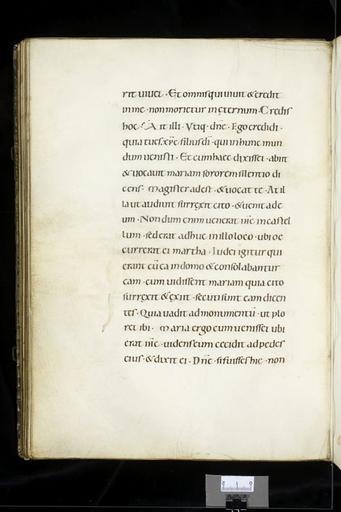 rit uiuet · Et omnis qui uiuit & credit
in me · non morietur in ęternum · Credis
hoc? Ait illi · Utiq · dne · Ego credidi ·
quia tu es xpe filius di · qui in hunc mun
dum uenisti · Et cum haec dixisset · abiit
& uocauit mariam sororem silentio di
cens · Magister adest · & uocat te · At il
la ut audiuit surrexit cito · & uenit ad e
um · Non dum enim uenerat ihc in castel
lum · sed erat adhuc in illo loco · ubi oc
currerat ei martha · Iudei igitur qui
erant cū ea in domo & consolabantur
eam · cum uidissent mariam quia cito
surrexit & exiit · secuti sunt eam dicen
tes · Quia uadit ad monumentū · ut plo
ret ibi · Maria ergo cum uenisset ubi
erat ihc · uidens eum cecidit ad pedes
eius · & dixit ei · Dne · si fuisses hic · non